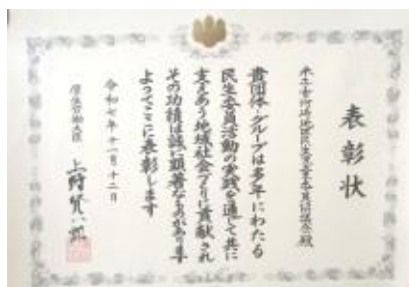 表彰状
地区民生児童委員協議会殿
貴団体・グループは多年にわたる
民生委員活動の実践を通して共に
支えあう地域社会づくりに貢献され
その功績は誠に顕著なものがあります
よってここに表彰します
令和七年十一月十二日
厚生労働大臣 上野賢一郎